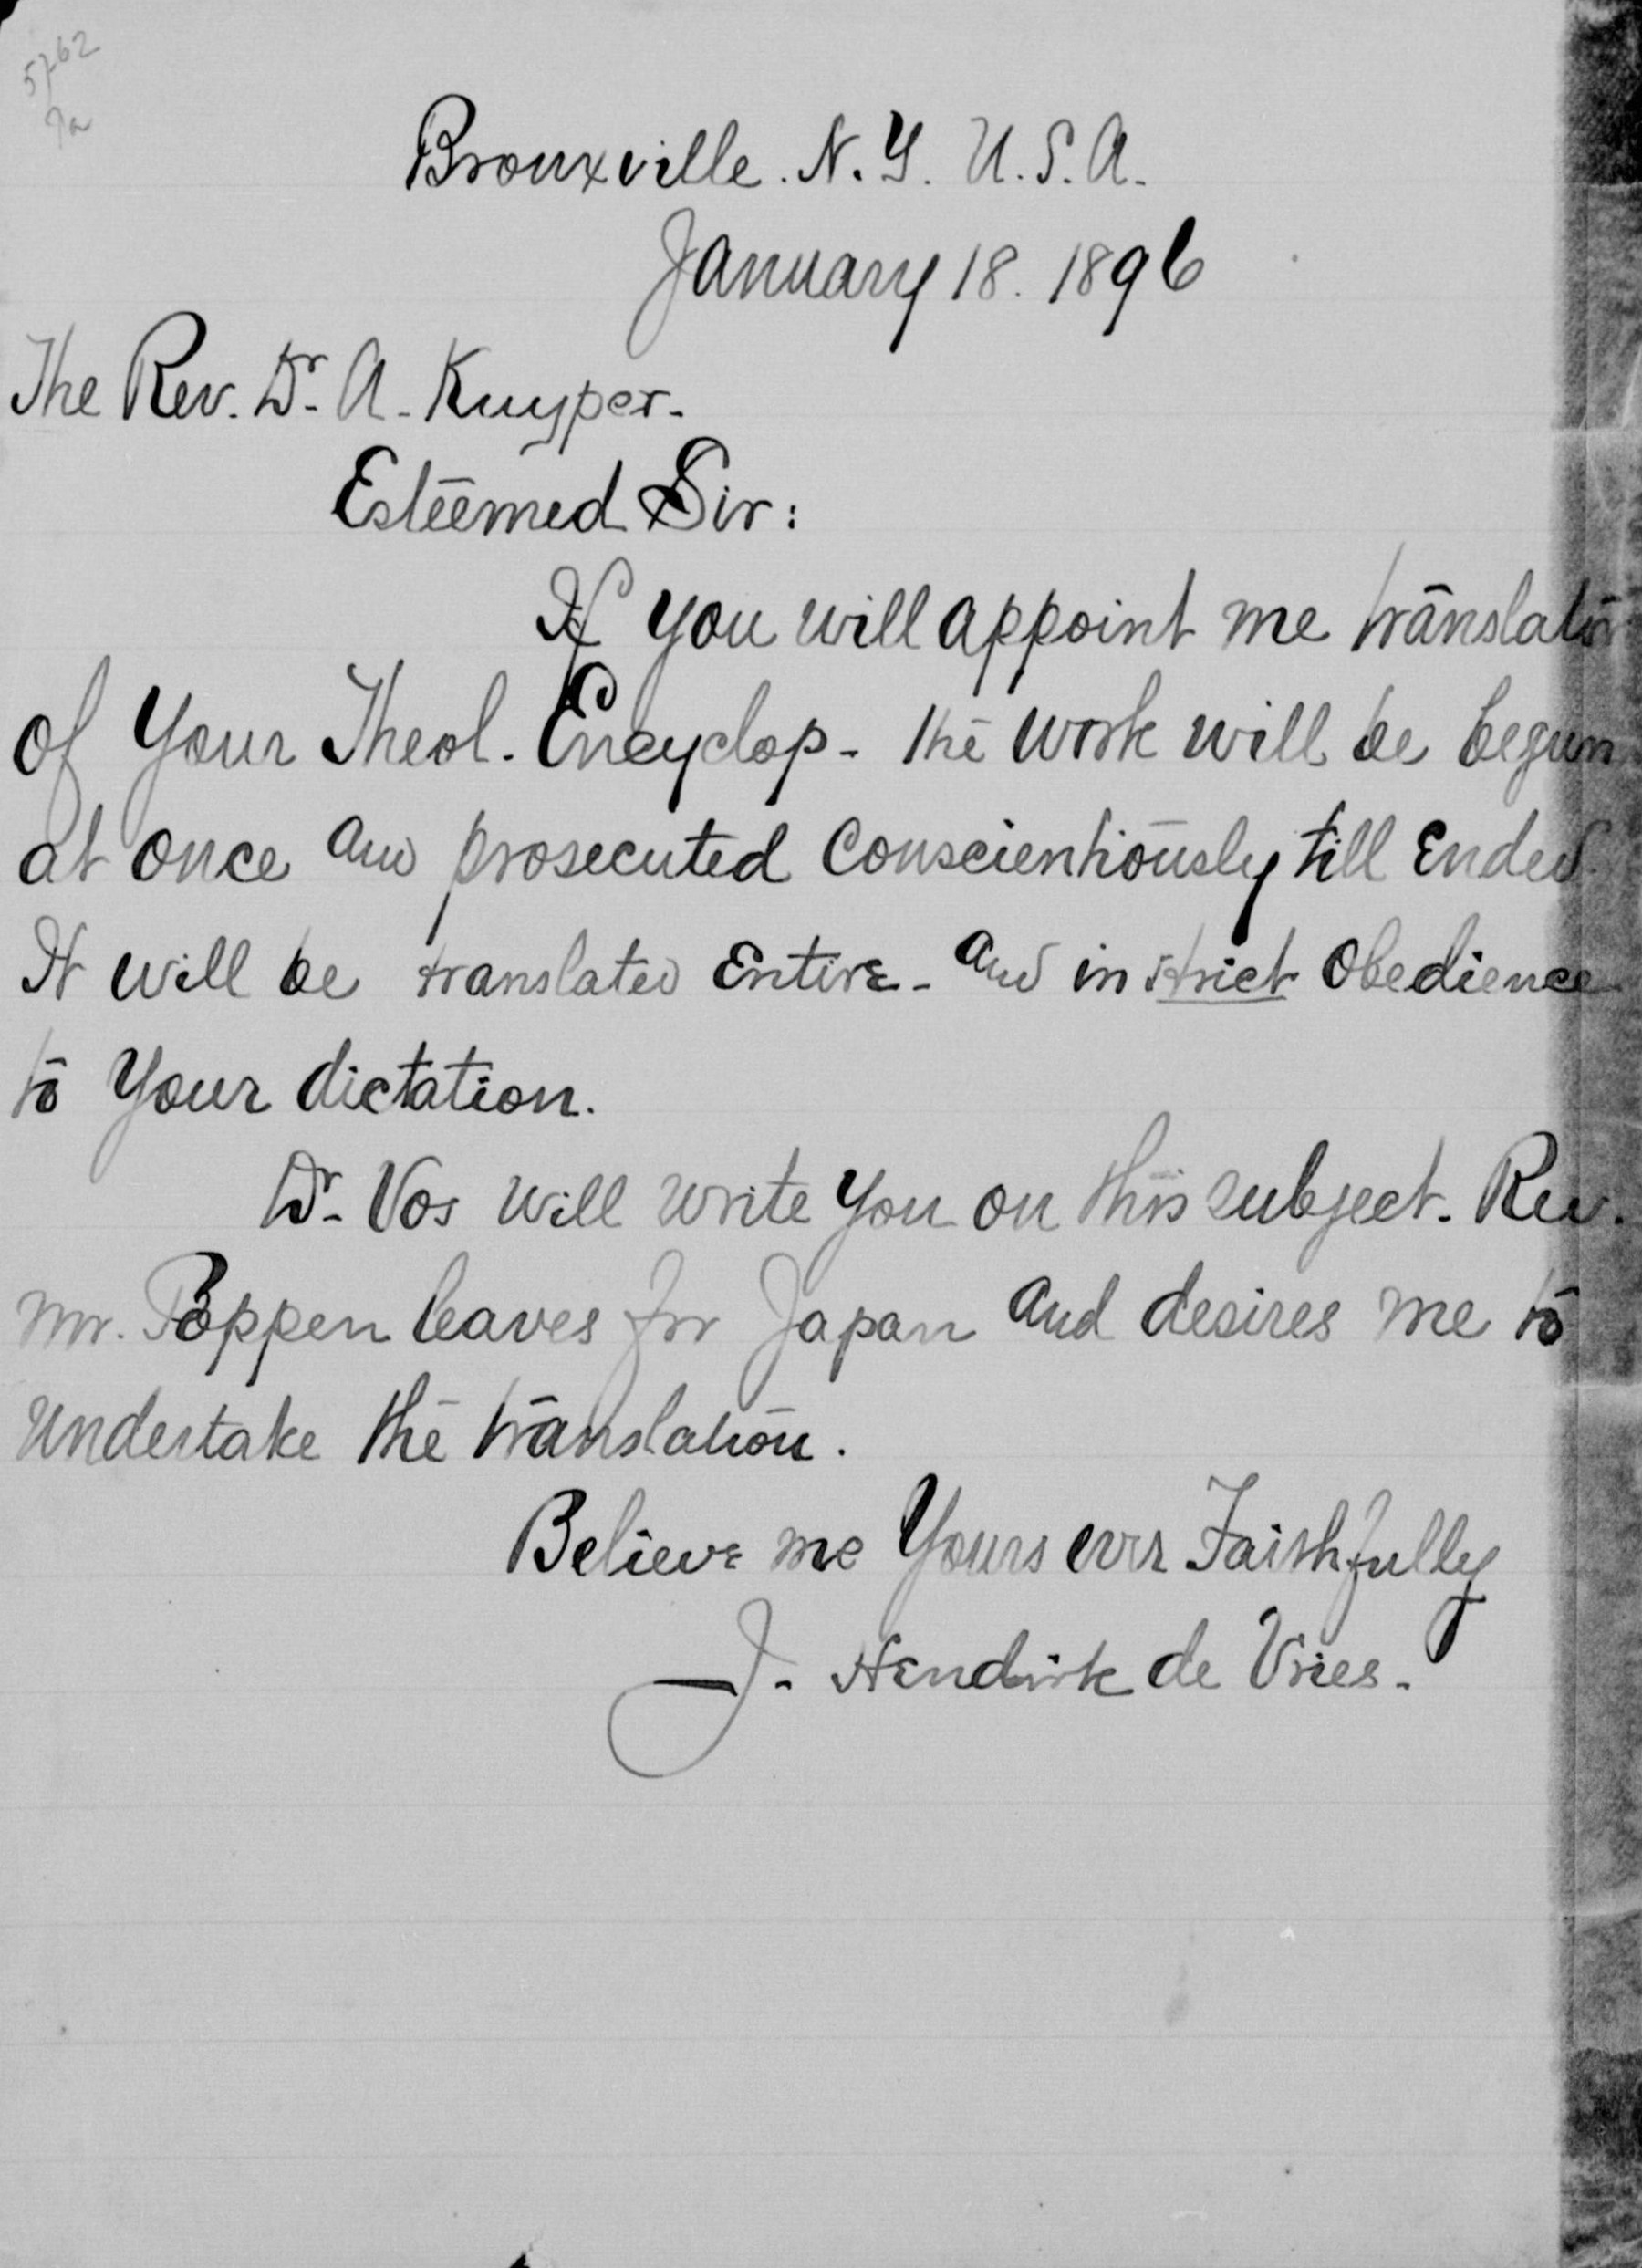 5762
Bronxville. N.Y. U.S.A.
January 18. 1896
The Rev. Dr. A. Kuyper.
Esteemed Sir:
If you will appoint me translator
of Your Theol. Encyclop. the work will be begun
at once and prosecuted conscientiously till ended.
It will be translated entire. and in strict obedience
to Your dictation.
Dr. Vos will write you on this subject. Rev.
Mr. Poppen leaves for Japan and desires me to
undertake the translation.
Believe me Yours ever Faithfully
J. Hendrik de Vries.